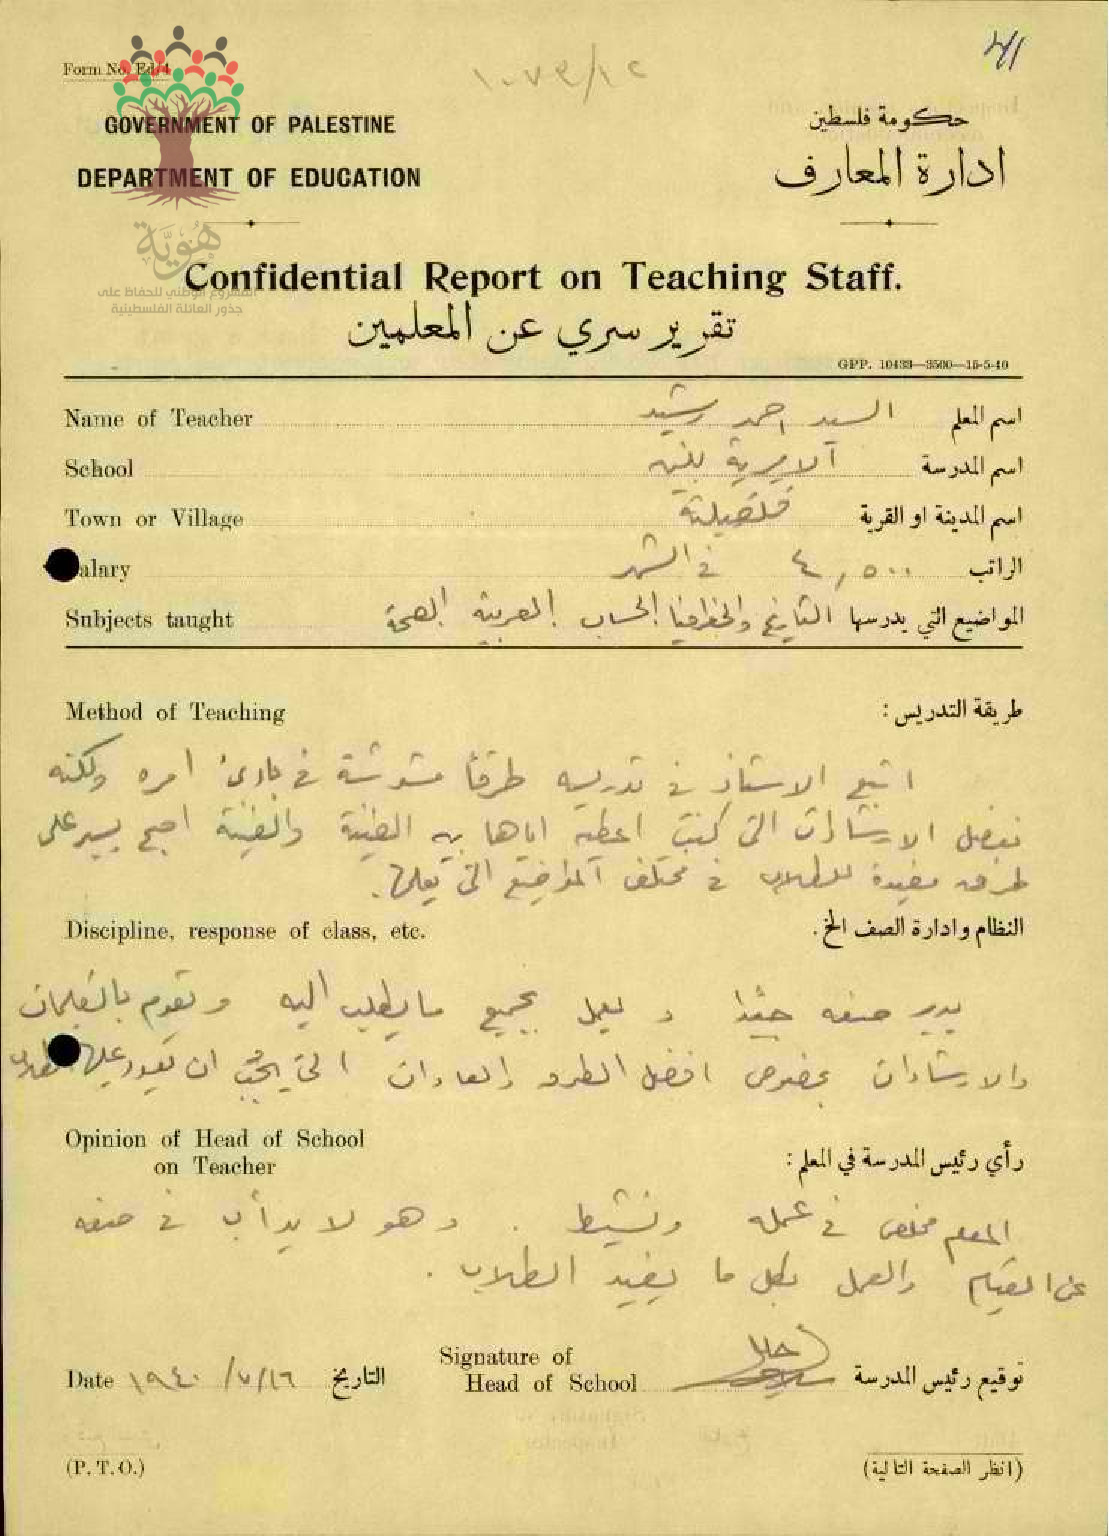 Form No. Ed/4
١٠٧٩/١٢
GOVERNMENT OF PALESTINE
حكومة فلسطين
DEPARTMENT OF EDUCATION
ادارة المعارف
هُوِيَّة
المشروع الوطني للحفاظ على
جذور العائلة الفلسطينية
Confidential Report on Teaching Staff.
تقرير سري عن المعلمين
GPP. 10433—3500—15-5-40
Name of Teacher السيد احمد رشيد اسم المعلم
School الاميرية اسم المدرسة
Town or Village اسم المدينة او القرية
alary ٤,٥٠٠ في الشهر الراتب
Subjects taught التاريخ والجغرافيا الحساب العربية الصحة المواضيع التي يدرسها
Method of Teaching طريقة التدريس :
اتبع الاستاذ في تدريسه طرقا مشوشة في بادئ امره ولكنه
بفضل الارشادات التي كنت اعطيه اياها بين الفينة والفينة اصبح يسير على
طرق مفيدة للطلاب في مختلف المواضيع التي يعلمها.
Discipline, response of class, etc. النظام وادارة الصف الخ.
يدير صفه جيدا و يعمل بجميع ما يطلب اليه و يقوم بالتعليمات
والارشادات بخصوص افضل الطرق والعادات التي يجب ان يتعود عليها
Opinion of Head of School
on Teacher
رأي رئيس المدرسة في المعلم :
المعلم مخلص في عمله ونشيط . وهو لا يدأب في صفه
عن القيام والعمل بكل ما يفيد الطلاب .
Signature of
Head of School
توقيع رئيس المدرسة
Date ١٩٤٠/٧/١٦ التاريخ
(P. T. O.)
(انظر الصفحة التالية)